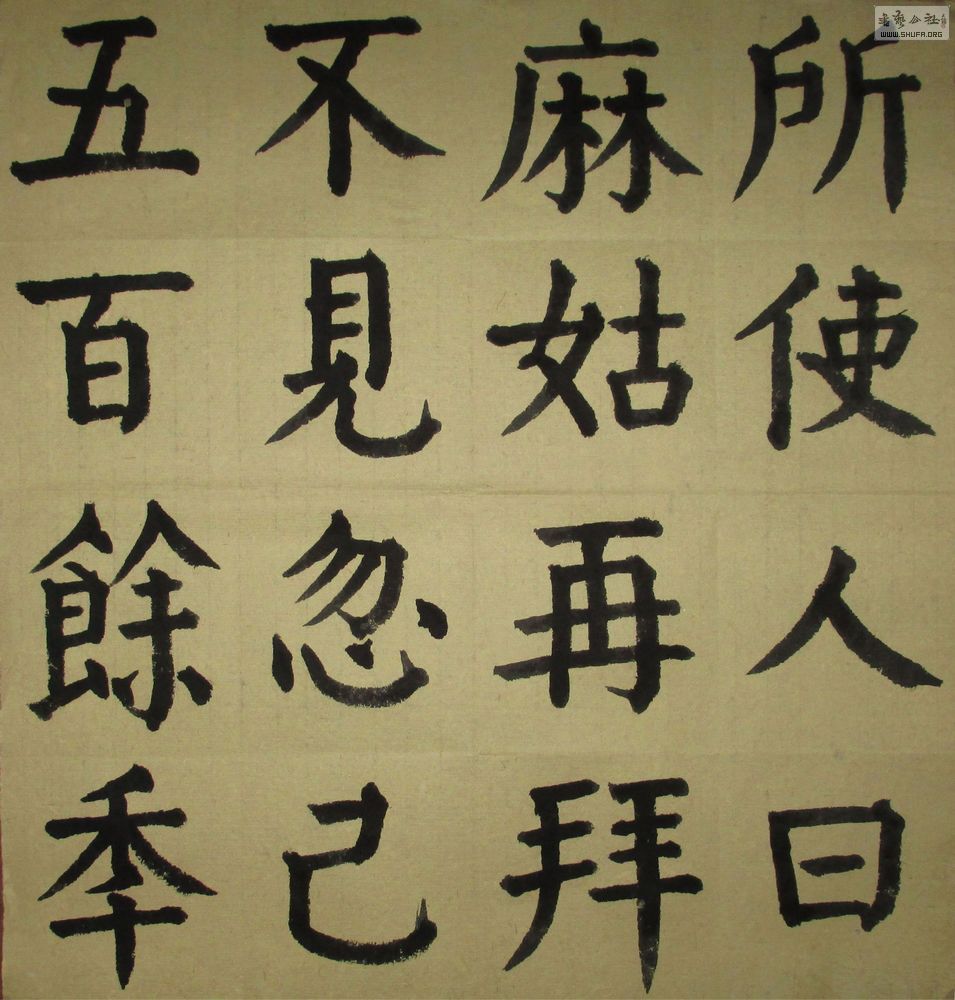 所使人曰
麻姑再拜
不見忽已
五百餘秊
書藝公社
WWW.SHUFA.ORG